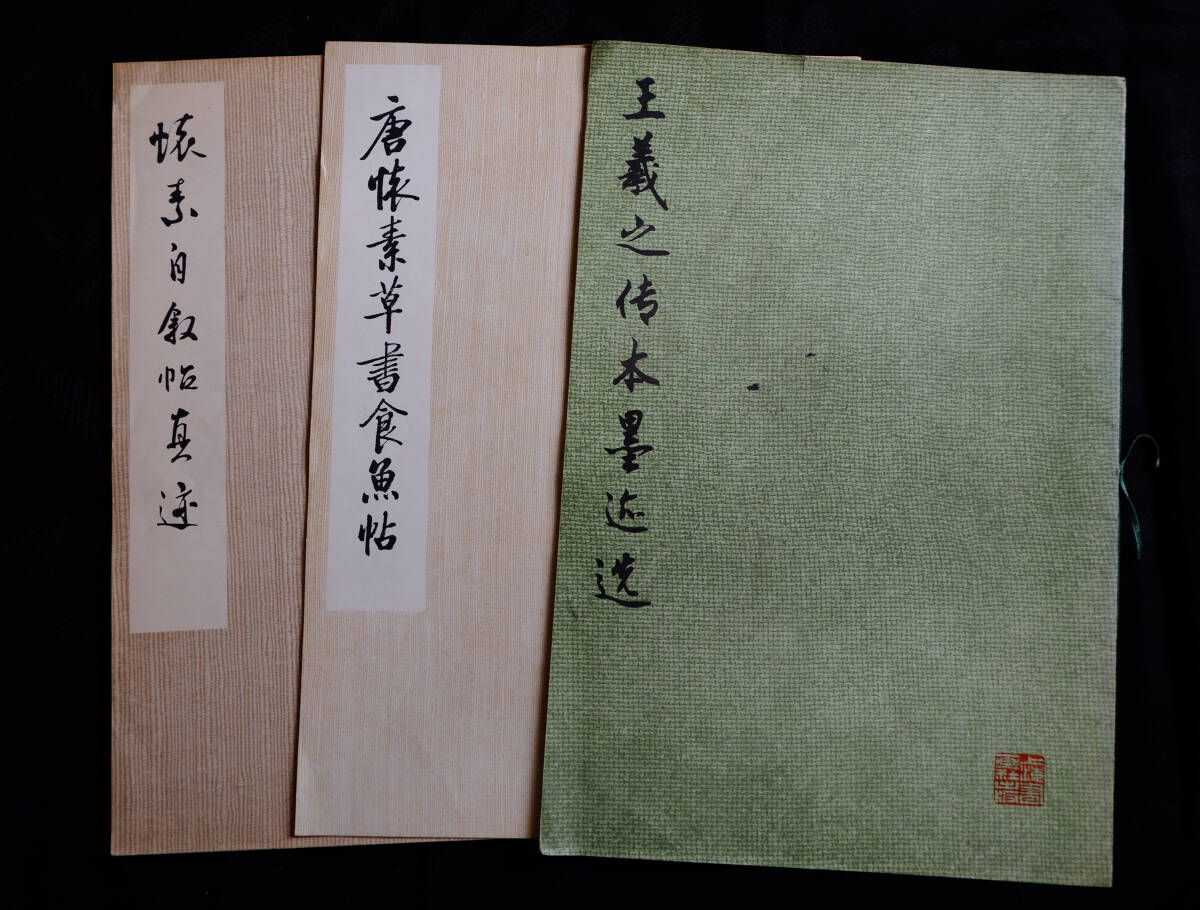 懐素自叙帖真迹
唐懐素草書食魚帖
王羲之传本墨迹选